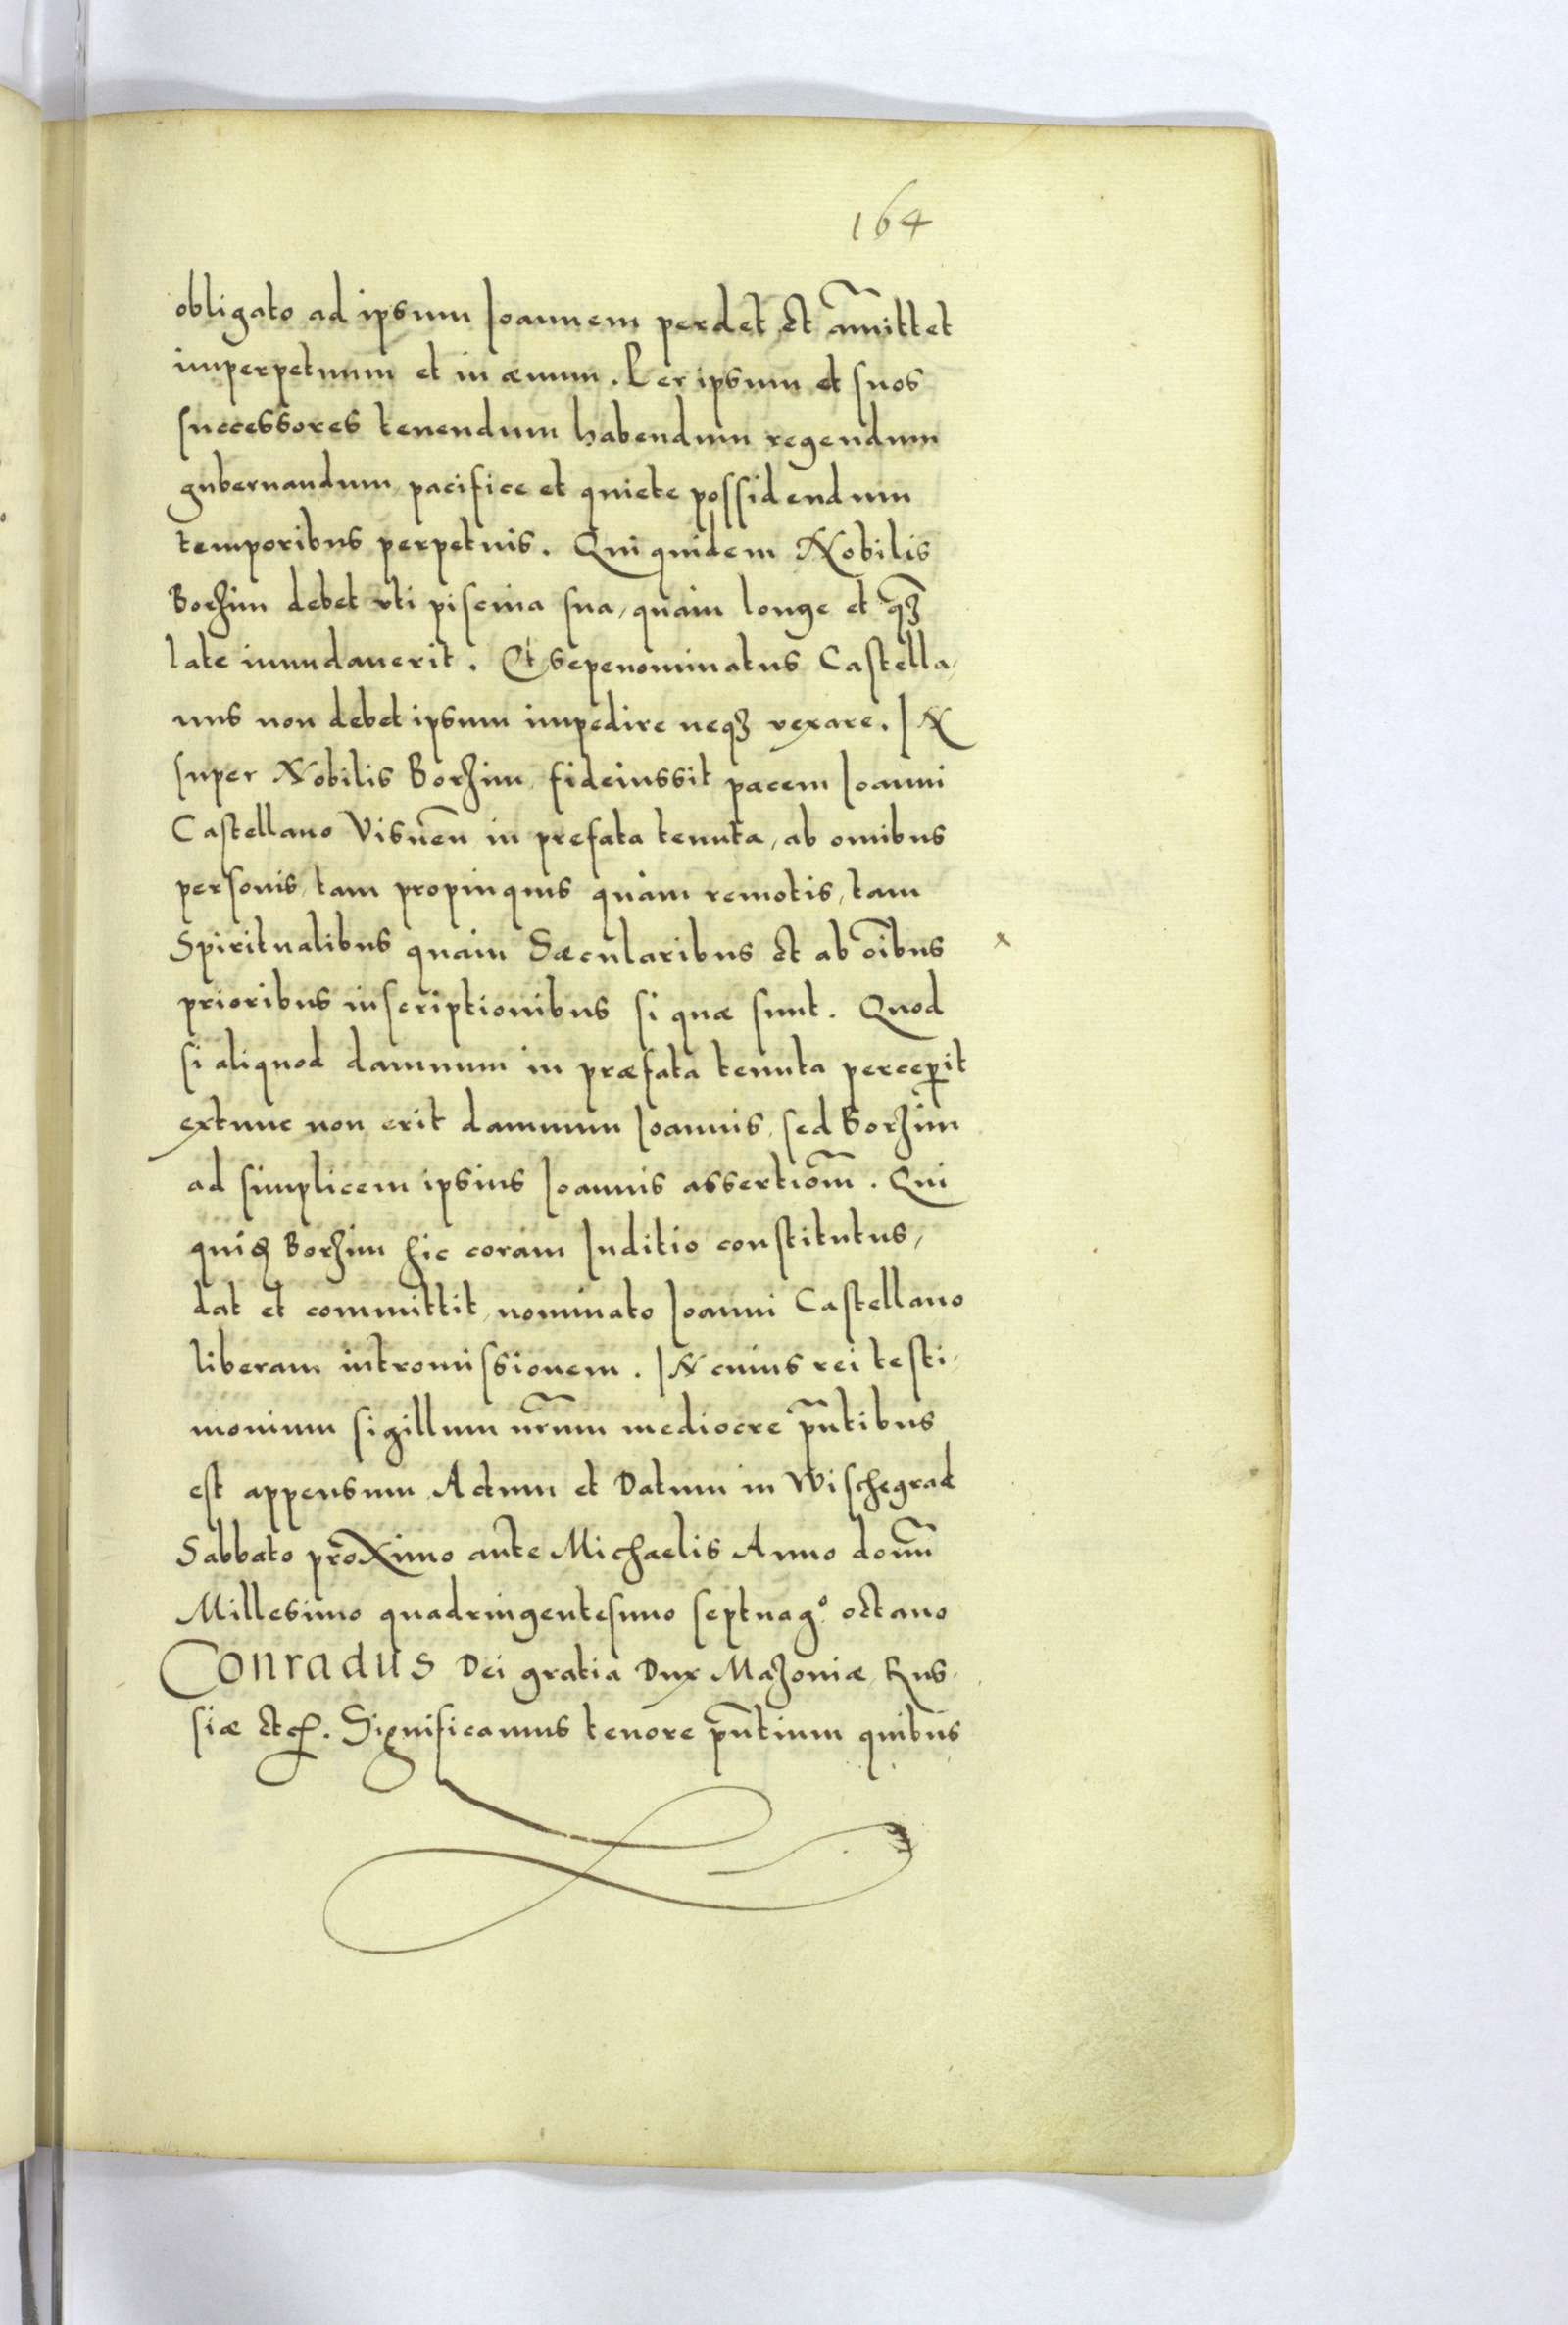 164
obligato ad ipsum Ioannem perdet et am̃ittet
imperpetuum et in æuum. Per ipsum et suos
successores tenendum habendum regendum
gubernandum pacifice et quiete possidendum
temporibus perpetuis. Qui quidem Nobilis
Borzim debet vti piscina sua, quam longe et q̃ꝫ
late inundauerit. Et sepenominatus Castella,
nus non debet ipsum impedire neqꝫ vexare. IN
super Nobilis Borzim fideiussit pacem Ioanni
Castellano Visnen̄ in prefata tenuta, ab omibus
personis, tam propinquis quàm remotis, tam
Spiritualibus quàm Sæcularibus et ab oībus x
prioribus inscriptionibus si quæ sunt. Quod
si aliquod damnum in præfata tenuta perceperit
extunc non erit damnum Ioannis, sed Borzim
ad simplicem ipsius Ioannis assertiom̃. Qui
quiqꝫ Borzim hic coram Iuditio constitutus,
dat et committit nominato Ioanni Castellano
liberam intromissionem. IN cuius rei testi,
monium sigillum nr̃um mediocre pñtibus
est appensum Actum et Datum in Wischegrad
Sabbato proximo ante Michaelis Anno domñ
Millesimo quadringentesimo septuagº octauo
Conradus Dei gratia Dux Mazoniæ Rus,
siæ etcꝭ. Significamus tenore pñtium quibus